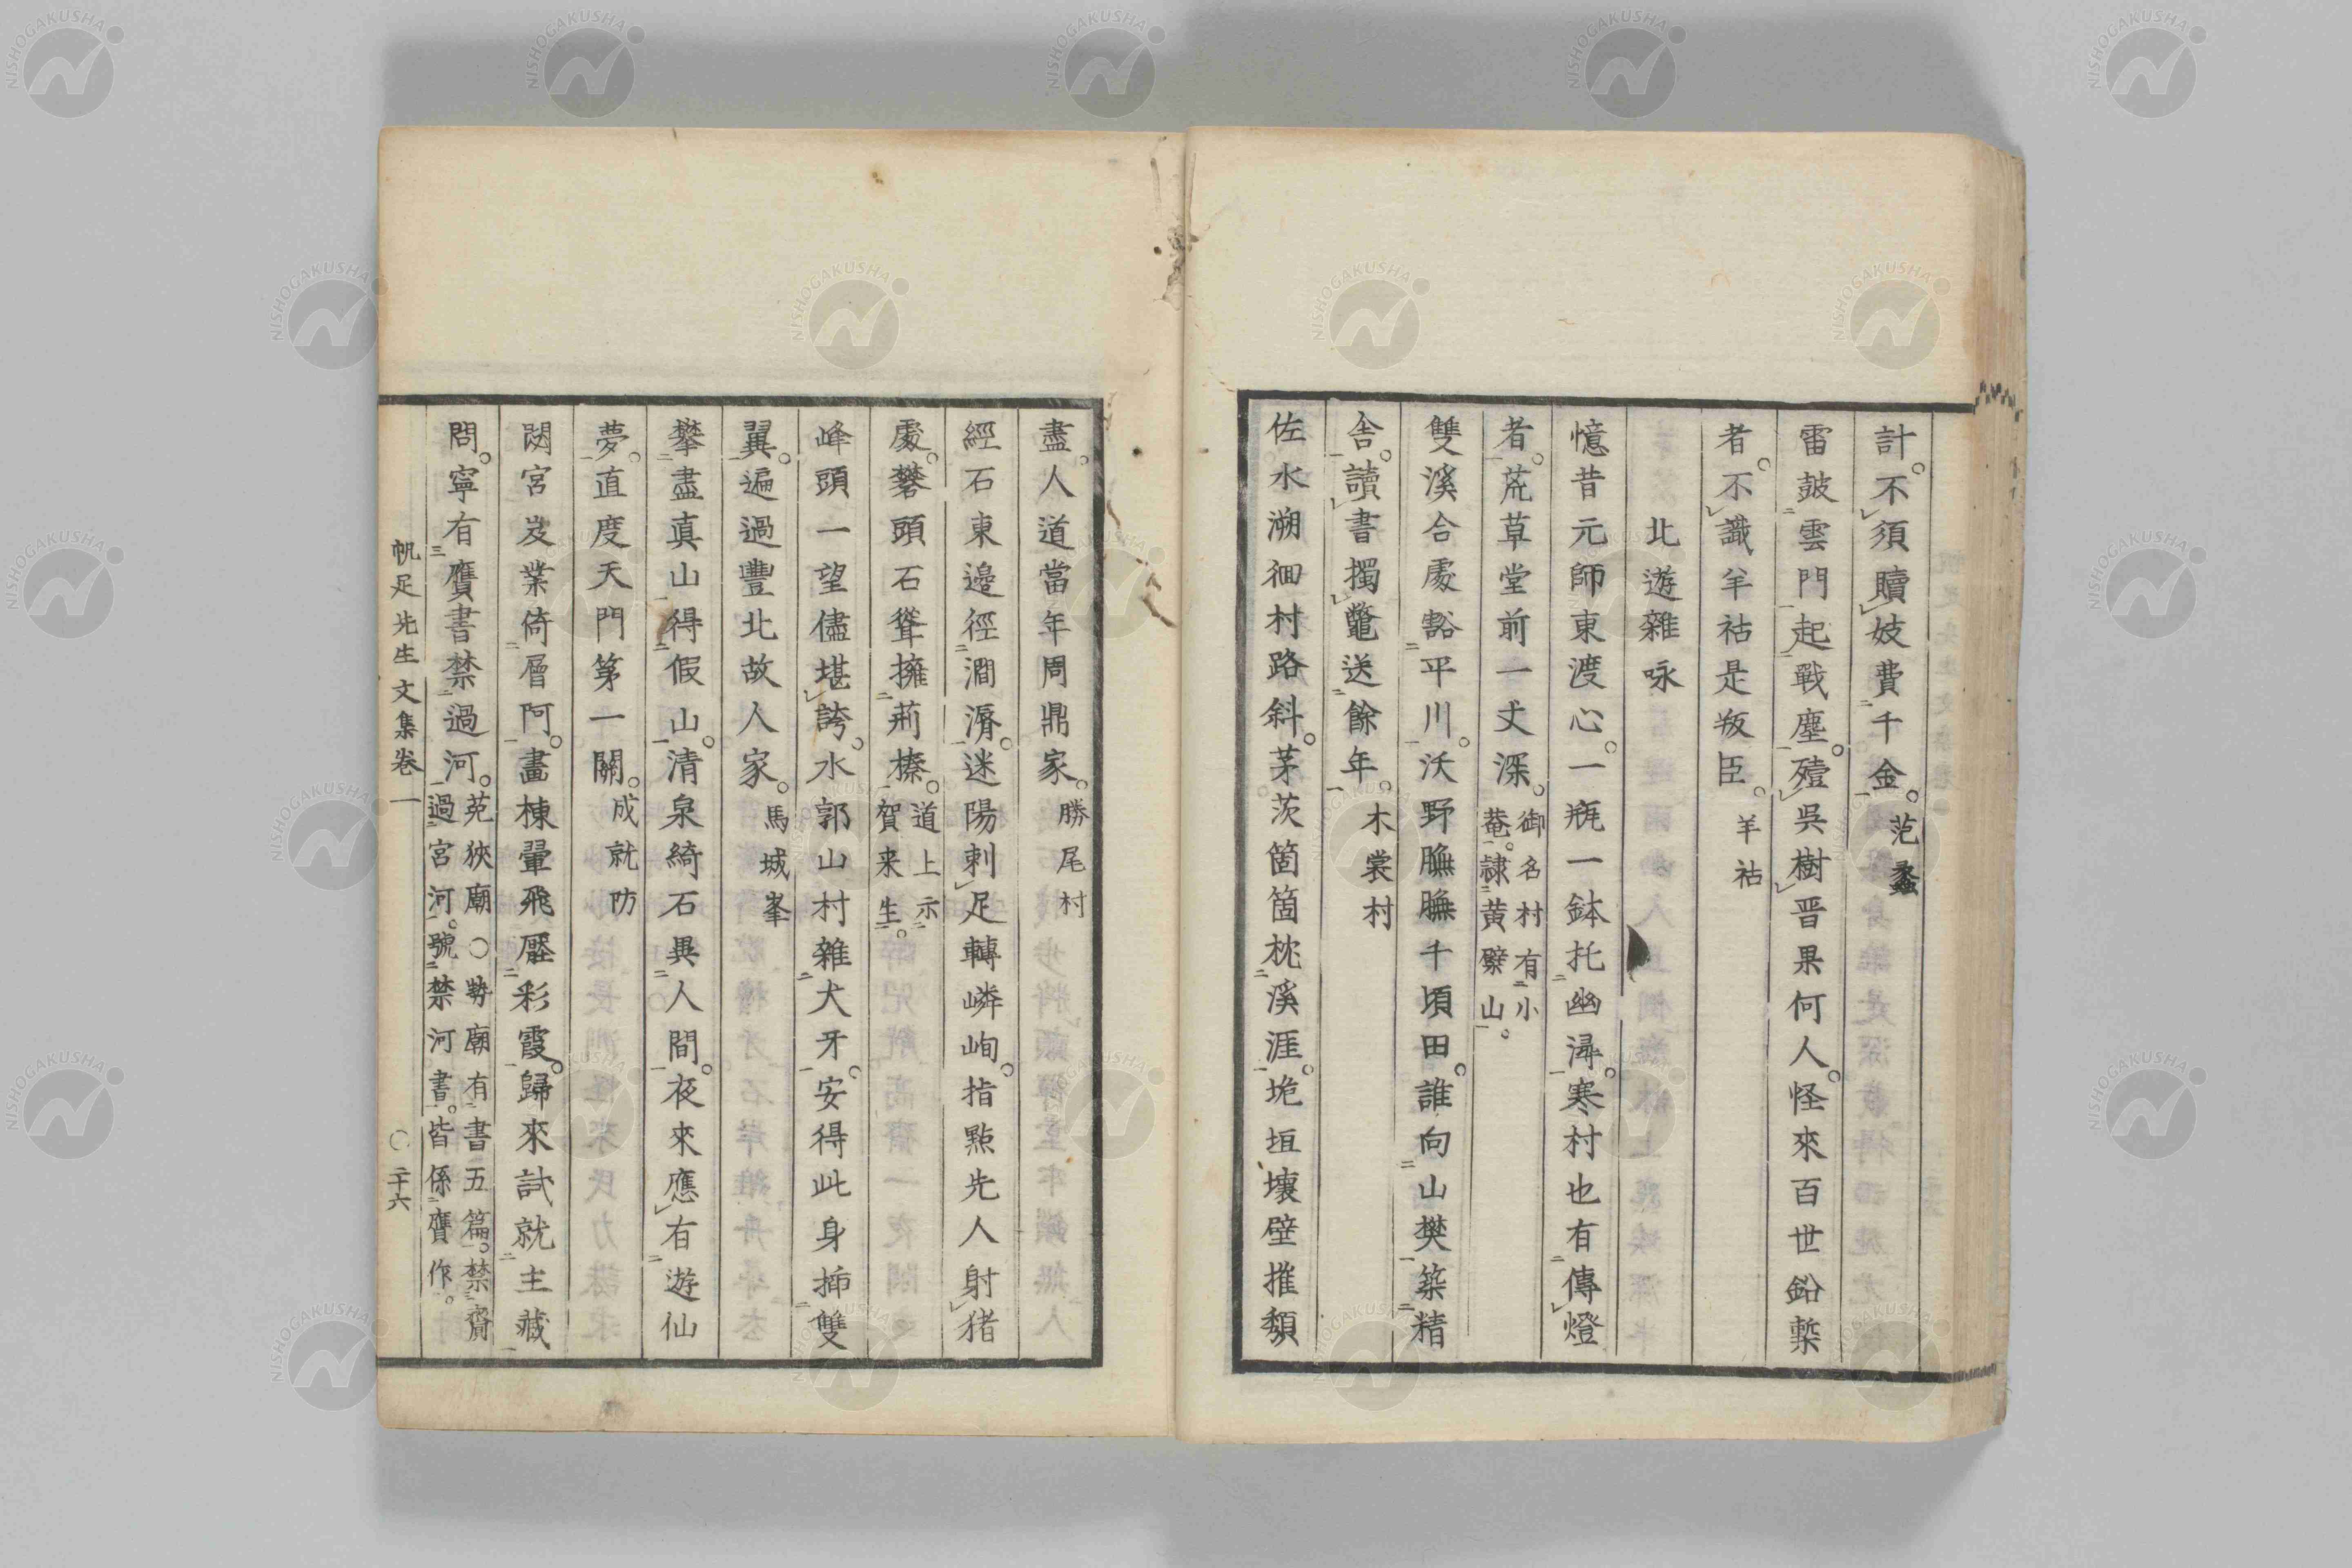 計。不須贖妓費千金。范蠡
雷鼓雲門起戰塵。殪吳樹晋果何人。怪來百世鉛槧
者。不識羊祜是叛臣。羊祜
北遊雜咏
憶昔元師東渡心。一瓶一鉢托幽潯。寒村也有傳燈
者。荒草堂前一丈深。御名村有小菴。隷黄檗山。
雙溪合處豁平川。沃野膴膴千頃田。誰向山樊築精
舍。讀書擉鼈送餘年。木裳村
佐水溯徊村路斜。茅茨箇箇枕溪涯。垝垣壊壁摧頽
盡。人道當年周鼎家。勝尾村
經石東邊徑澗漘。迷陽刺足轉嶙峋。指點先人射猪
處。礬頭石聳擁荊榛。道上示賀来生。
峰頭一望儘堪誇。水郭山村雜犬牙。安得此身揷雙
翼。遍過豐北故人家。馬城峯
攀盡真山得假山。清泉綺石異人間。夜來應有遊仙
夢。直度天門第一關。成就防
閟宮岌業倚層阿。畫棟翬飛壓彩霞。歸來試就主藏
問。寧有贋書禁過河。菟狹廟○㔟廟有書五篇。禁齎過宮河。號禁河書。皆係贋作。
帆足先生文集卷一 ○二十六
NISHOGAKUSHA